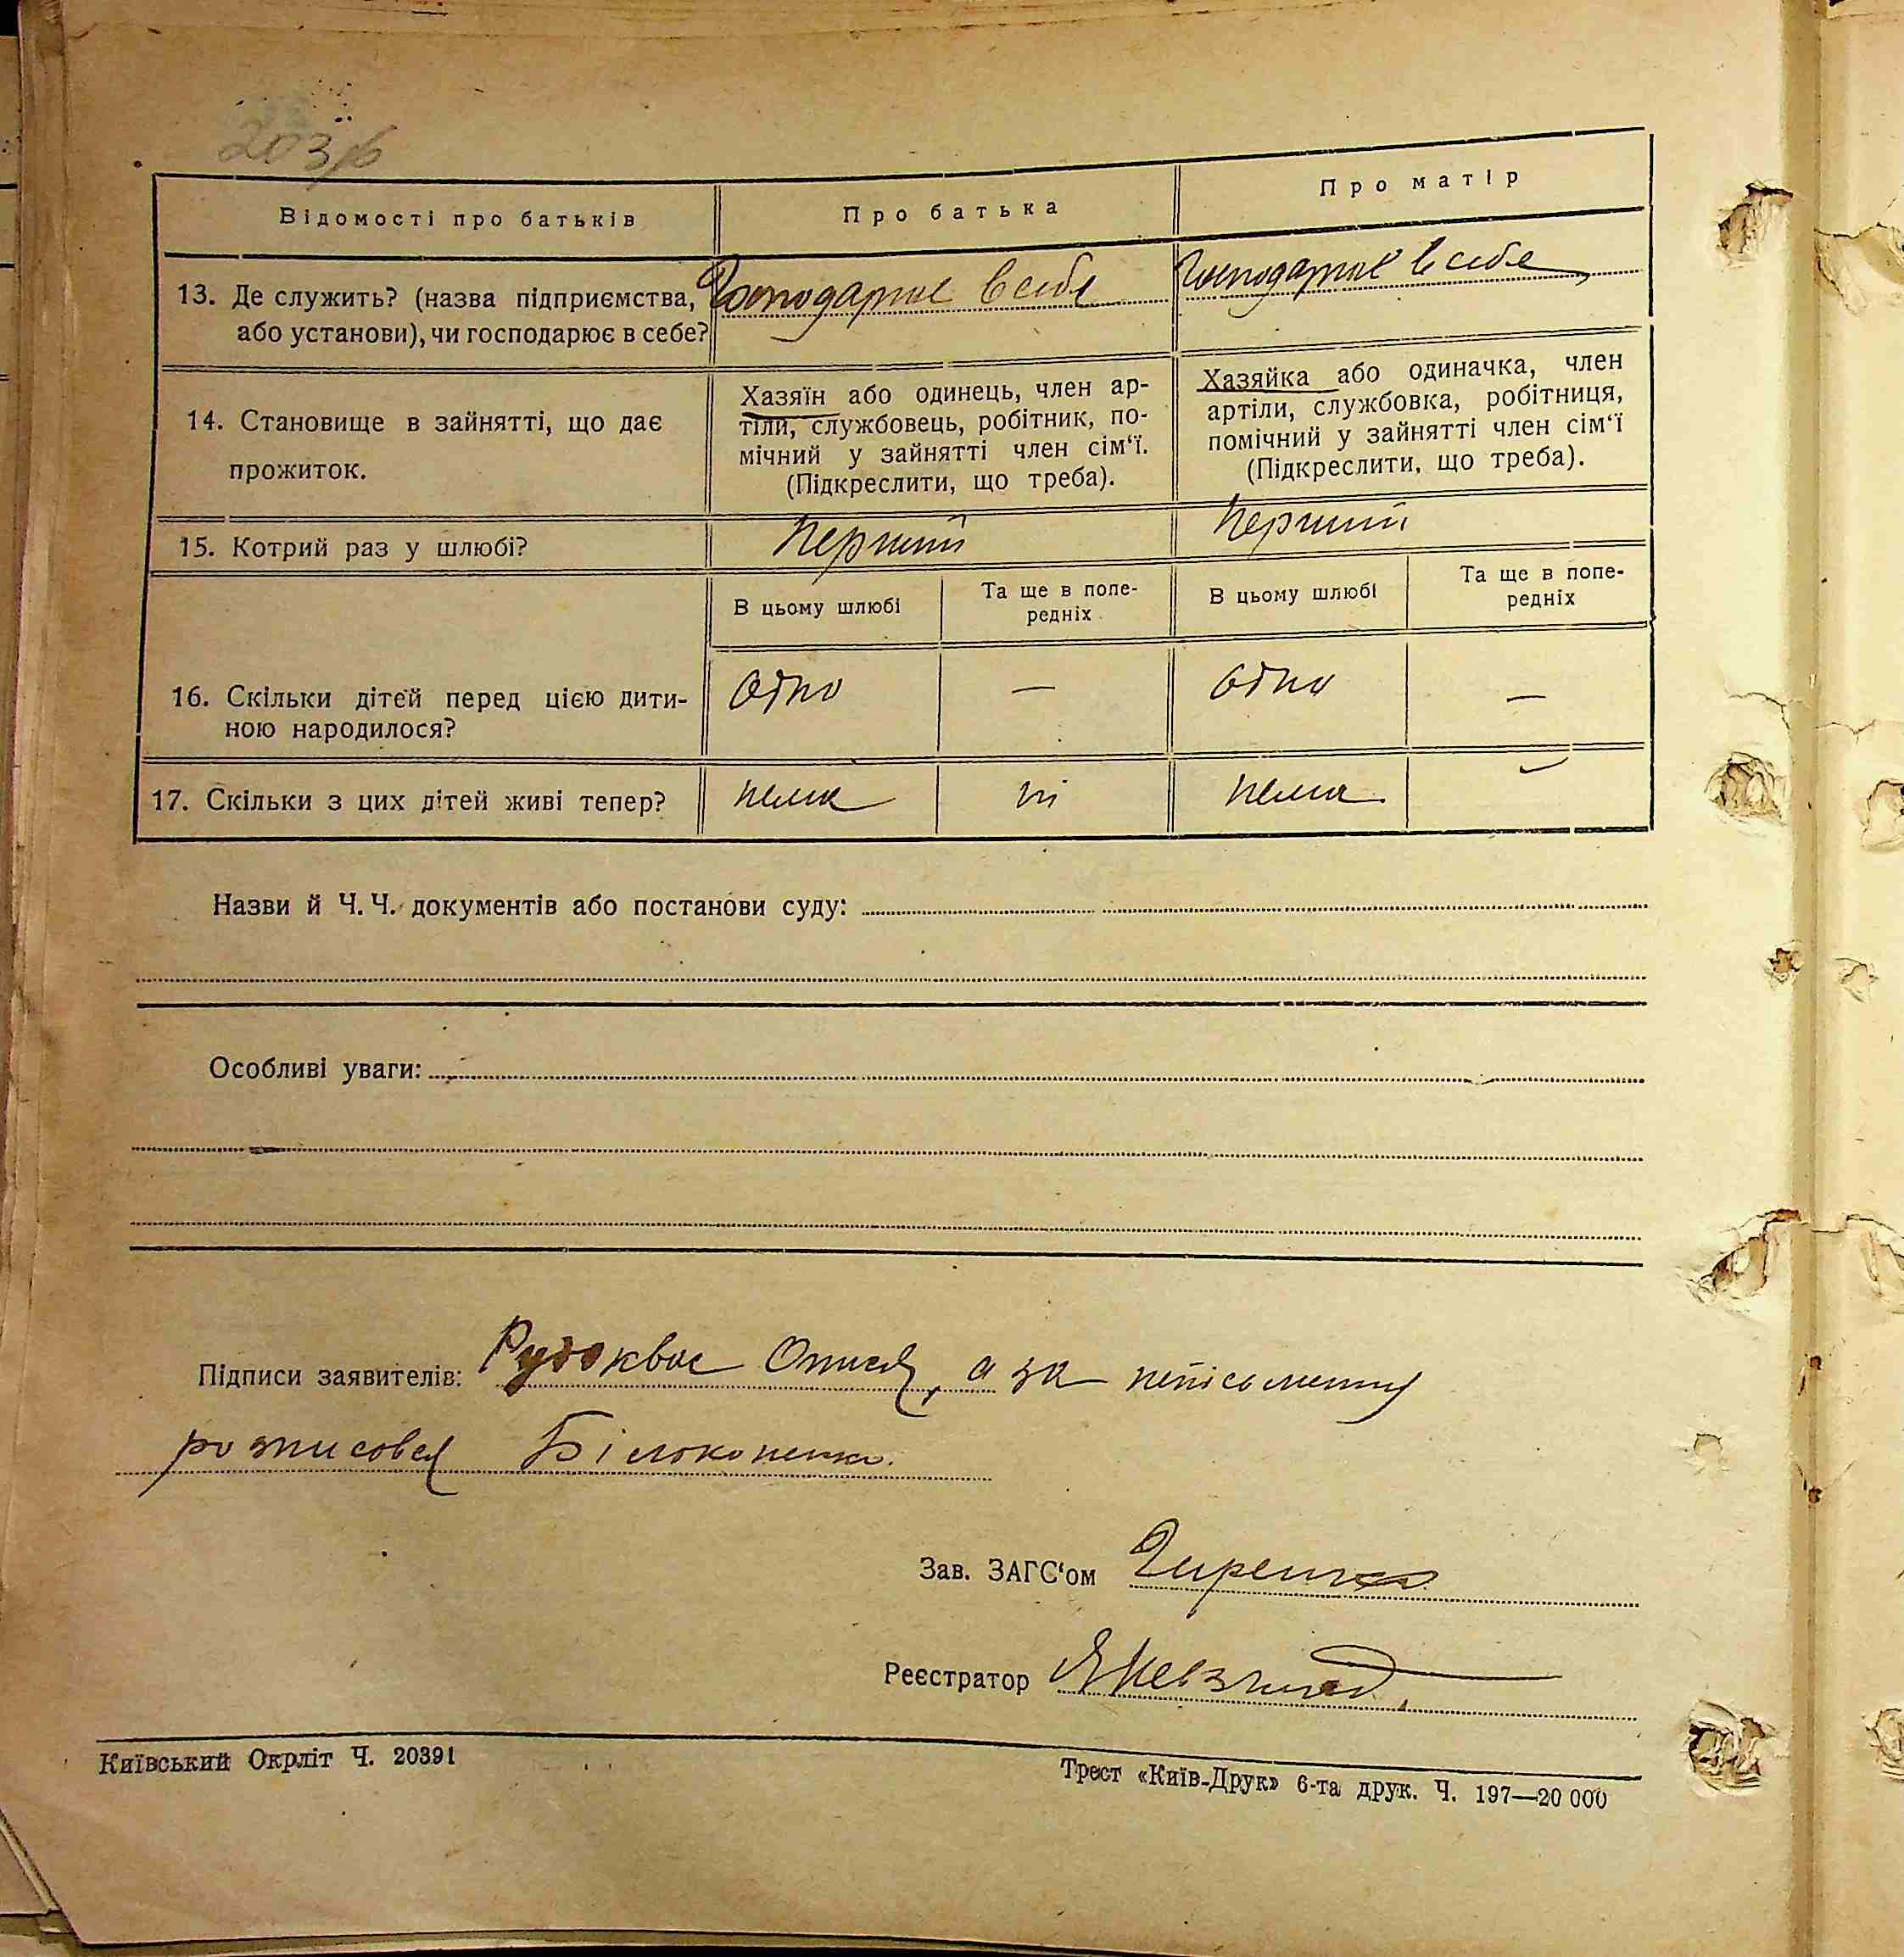 203
Відомості про батьків Про батька Про матір
13. Де служить? (назва підприємства, або установи), чи господарює в себе?
Господарює в себе
Господарює в себе
14. Становище в зайнятті, що дає прожиток.
Хазяїн або одинець, член ар-
тіли, службовець, робітник, по-
мічний у зайнятті член сім‘ї.
(Підкреслити, що треба).
Хазяйка або одиначка, член
артіли, службовка, робітниця,
помічний у зайнятті член сім‘ї
(Підкреслити, що треба).
15. Котрий раз у шлюбі? Перший Перший
В цьому шлюбі Та ще в попе-редніх В цьому шлюбі Та ще в попе-редніх
16. Скільки дітей перед цією дити-
ною народилося?
Одно — Одно —
17. Скільки з цих дітей живі тепер? нема ні нема
Назви й Ч. Ч. документів або постанови суду:
Особливі уваги:
Підписи заявителів: Рудоквас а за
розписовся Білоконенко.
Зав. ЗАГС‘ом
Реєстратор
Київський Окрліт Ч. 20391 Трест «Київ-Друк» 6-та друк. Ч. 197—20 000